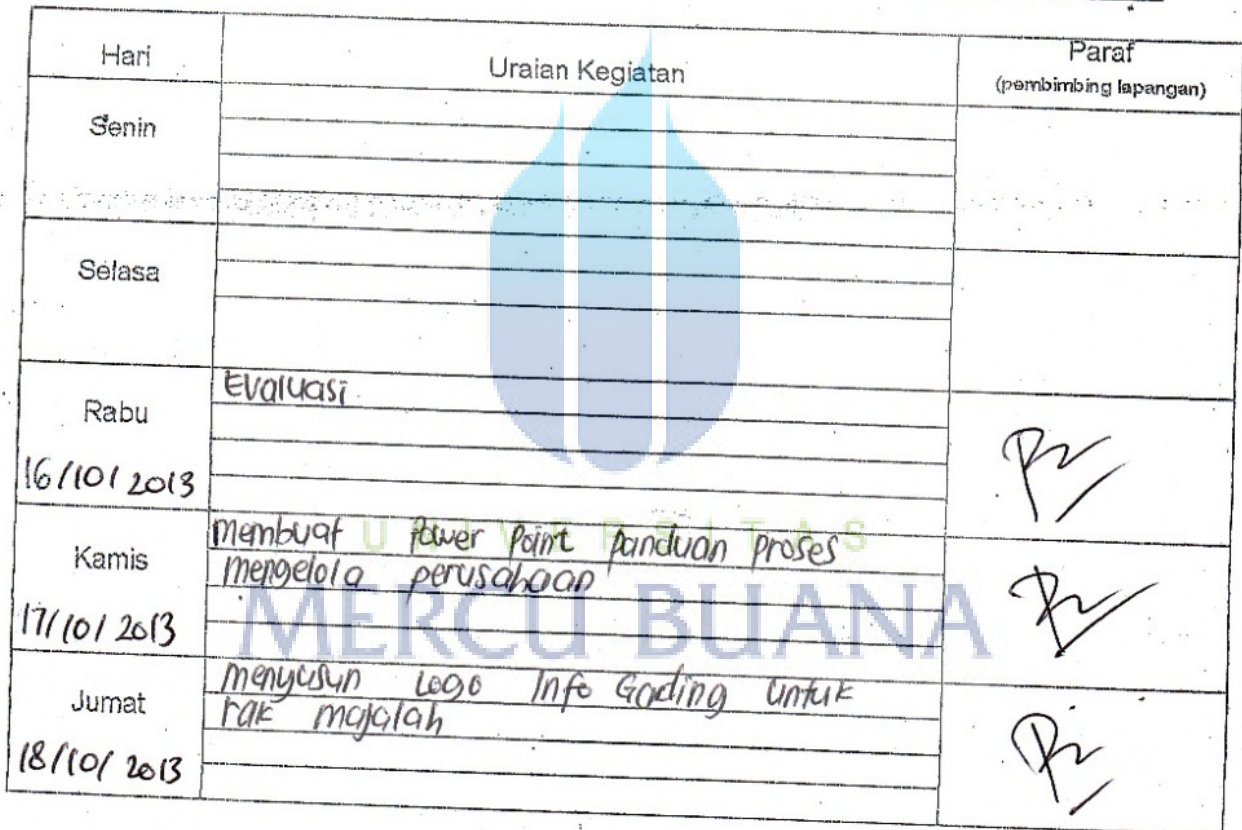 Hari
Uraian Kegiatan
Paraf
(pembimbing lapangan)
Senin
Selasa
Rabu
16/10/2013
Evaluasi
Kamis
17/10/2013
membuat Power Point panduan proses
mengelola perusahaan
Jumat
18/10/2013
menyusun Logo Info Gading untuk
rak majalah
UNIVERSITAS
MERCU BUANA